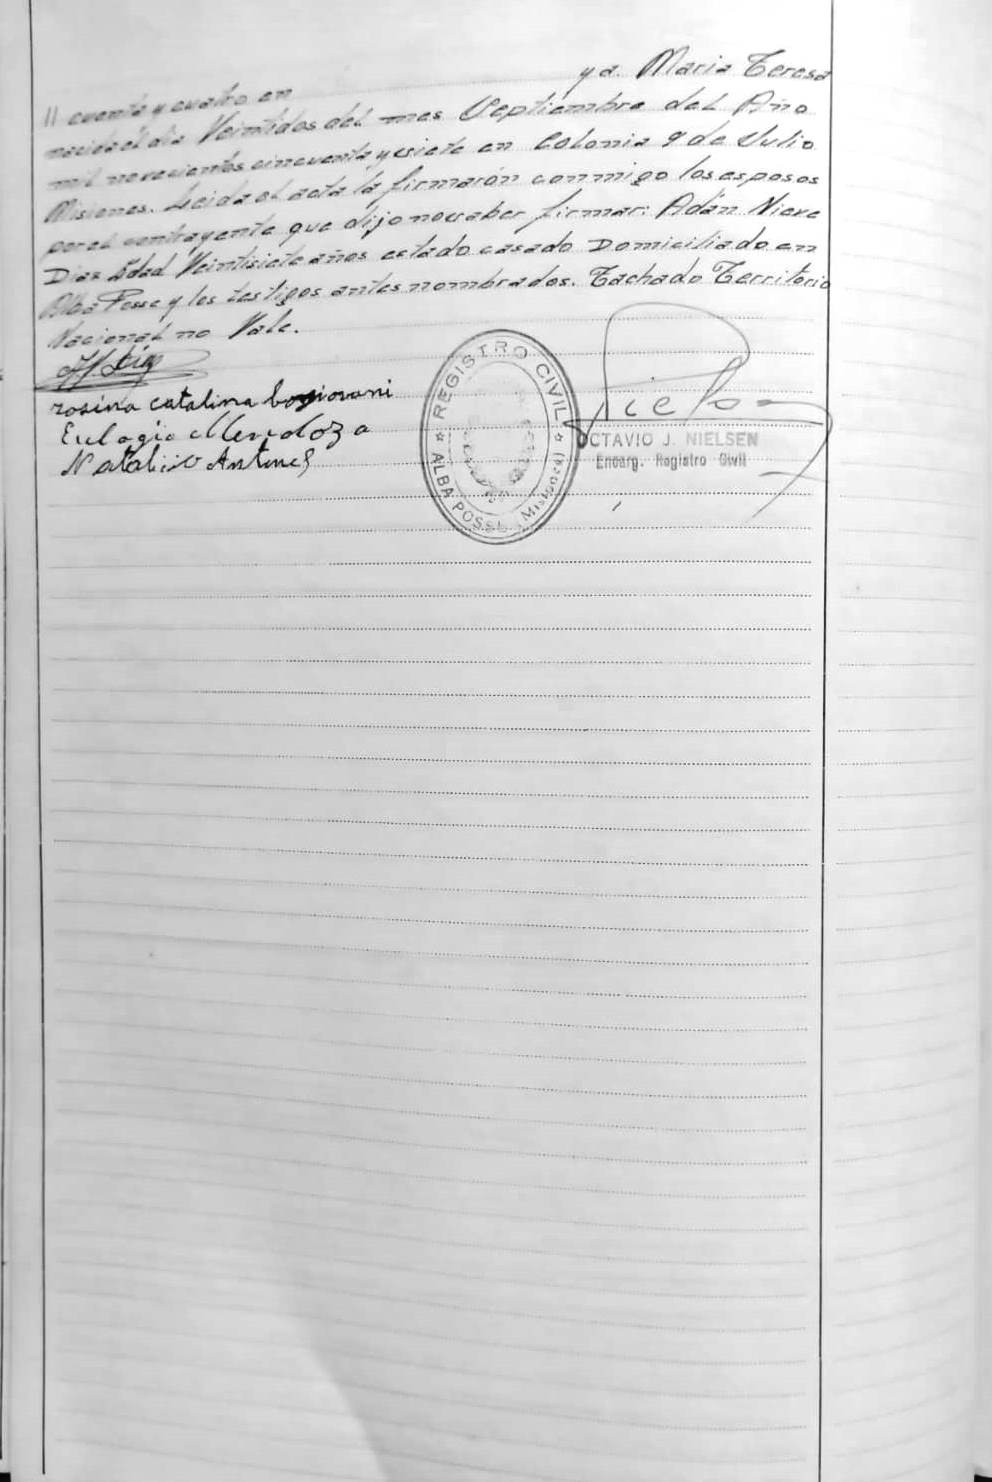 y a. Maria Teresa
cuenta y cuatro en
nacida el dia Veintidos del mes Septiembre del Año
mil novecientos cincuenta y siete en Colonia 9 de Julio
Misiones. Leida el acta la firmarón conmigo los esposos
por el contrayente que dijo no saber firmar: Adán Nieve
Dias Edad Veintisiete años estado casado Domiciliado en
Alba Posse y los testigos antes nombrados. Tachado Territorio
Nacional no Vale.
rosina catalina
Eulogio Mendoza
Natalicio Antunes
REGISTRO CIVIL
ALBA POSSE (Misiones)
OCTAVIO J. NIELSEN
Encarg. Registro Civil